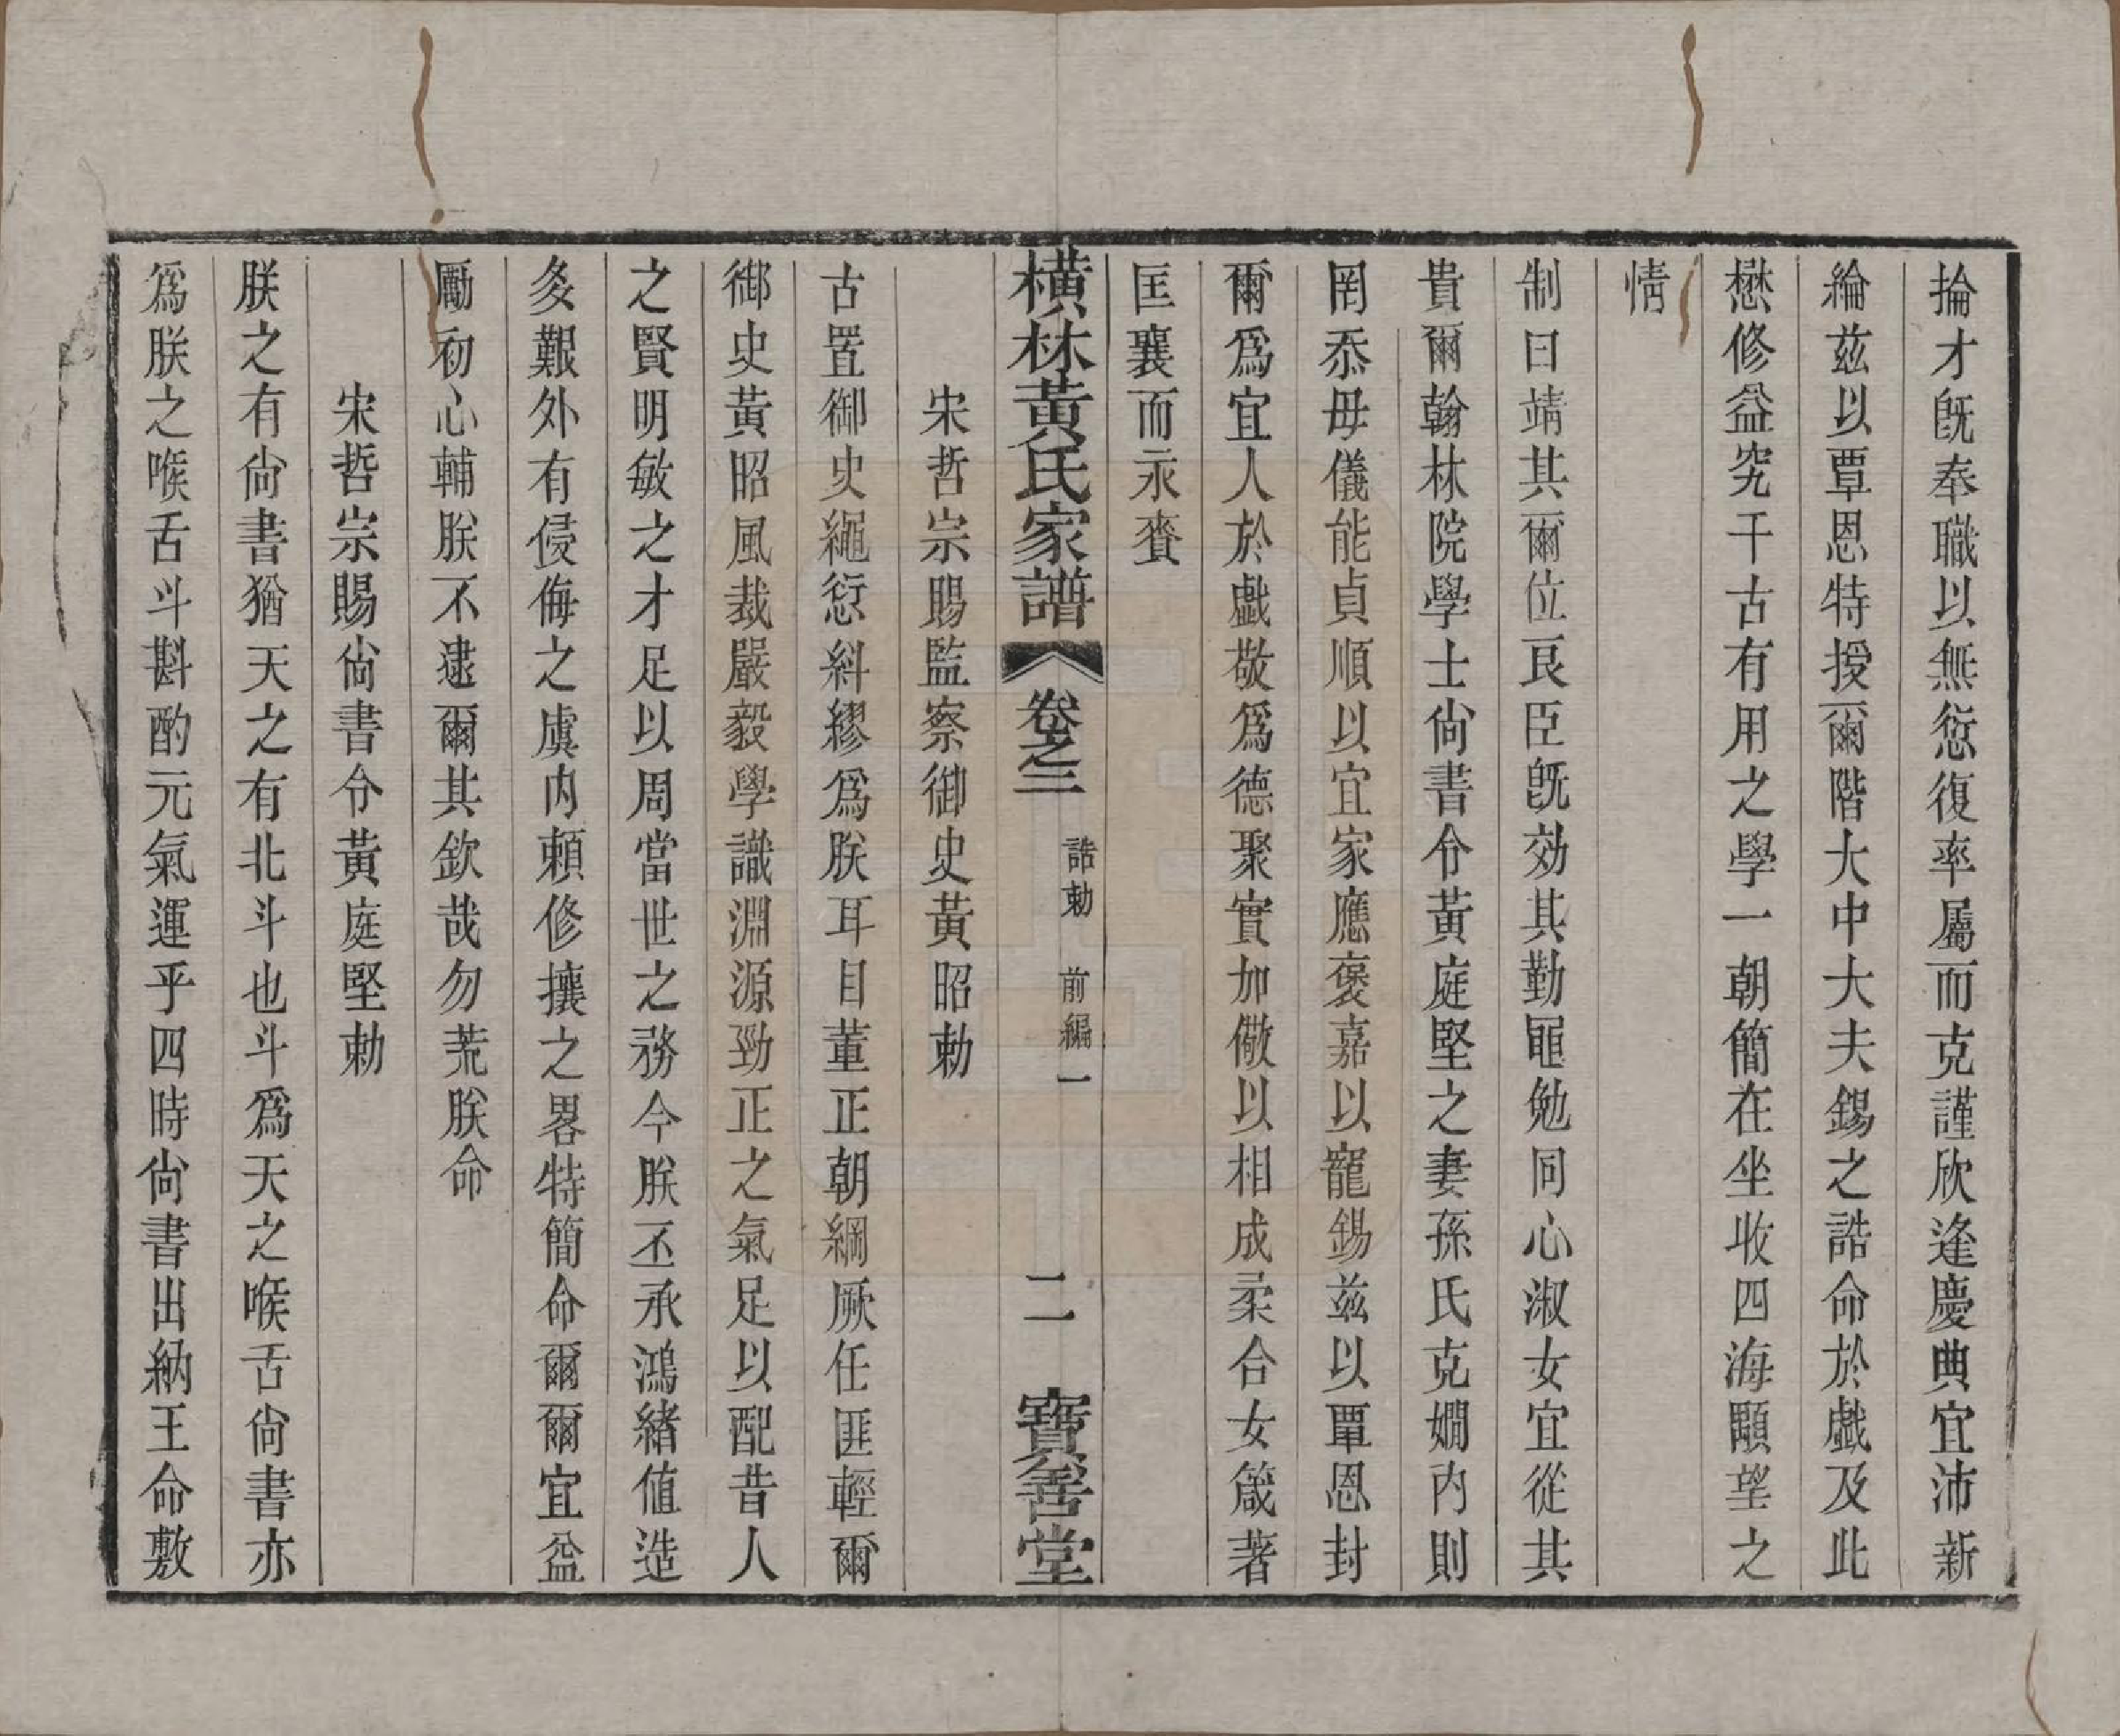 掄才旣奉職以無愆復率屬而克謹欣逢慶典宜沛新
綸茲以覃恩特授爾階大中大夫錫之誥命於戲及此
懋修益究千古有用之學一朝簡在坐收四海顒望之
情
制曰靖其爾位良臣旣効其勤黽勉同心淑女宜從其
貴爾翰林院學士尙書令黃庭堅之妻孫氏克嫻內則
罔忝毋儀能貞順以宜家應褒嘉以寵錫茲以覃恩封
爾爲宜人於戲敬爲德聚實加儆以相成柔合女箴著
匡襄而永賚
橫林黃氏家譜 卷之三 誥勅 前編一 二 寶善堂
宋哲宗賜監察御史黃昭勅
古置御史繩愆糾繆爲朕耳目董正朝綱厥任匪輕爾
御史黃昭風裁嚴毅學識淵源勁正之氣足以配昔人
之賢明敏之才足以周當世之務今朕丕承鴻緖値造
多艱外有侵侮之虞内賴修攘之畧特簡命爾爾宜益
勵初心輔朕不逮爾其欽哉勿荒朕命
宋哲宗賜尙書令黃庭堅勅
朕之有尙書猶天之有北斗也斗爲天之喉舌尙書亦
爲朕之喉舌斗斟酌元氣運乎四時尙書出納王命敷